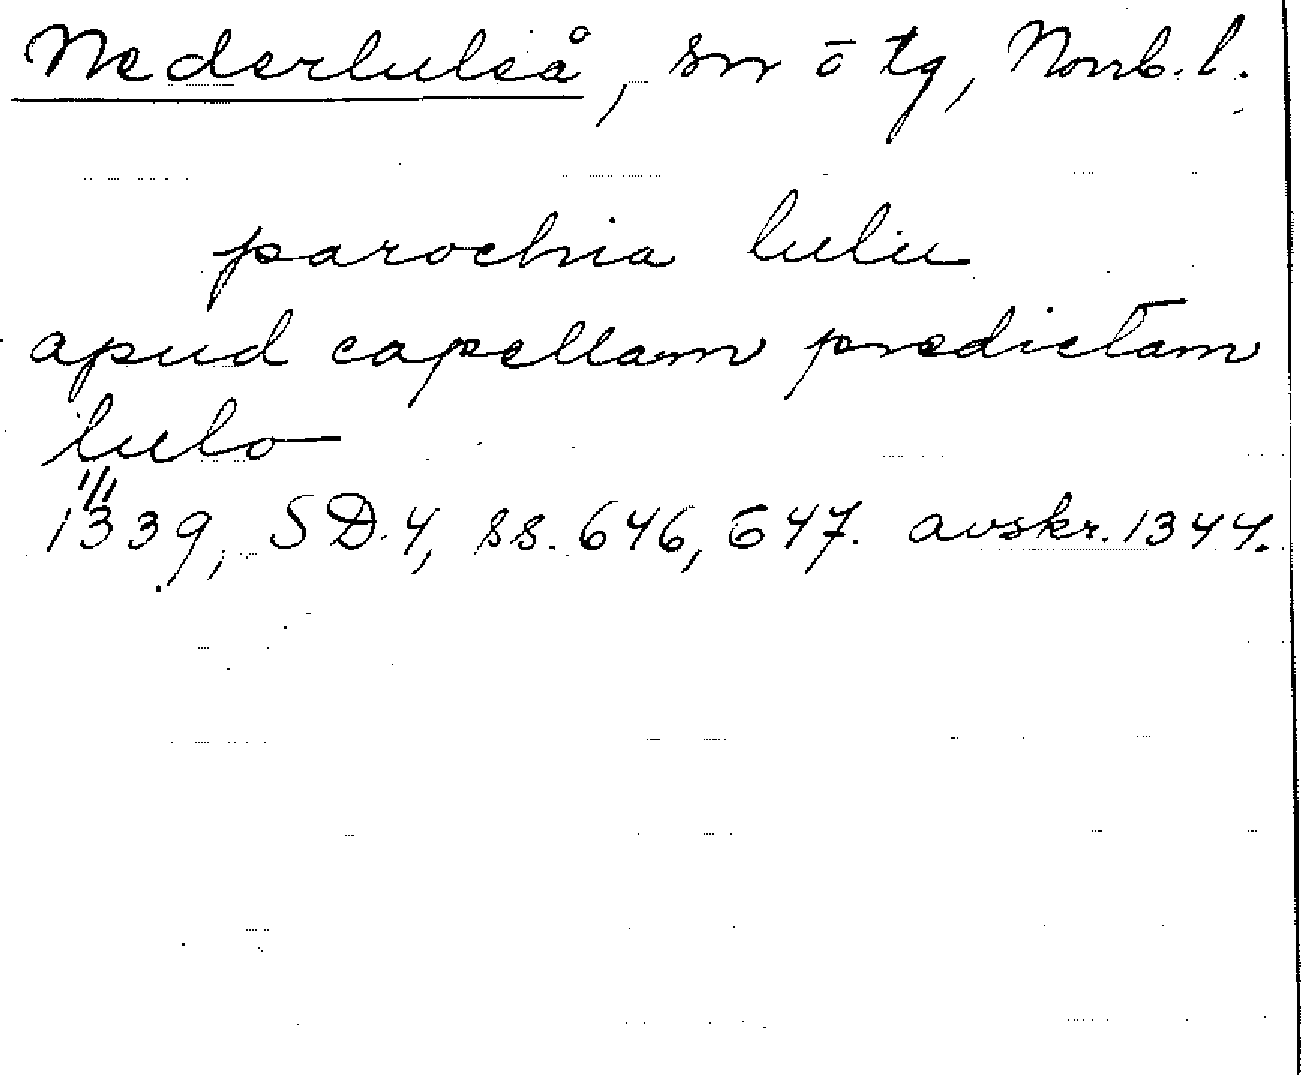 Nederluleå, sn o tg, Norrb. l.
parochia lulu
apud capellam predictam
lulo
1/11
1339, SD. 4, ss. 646, 647. avskr. 1344.